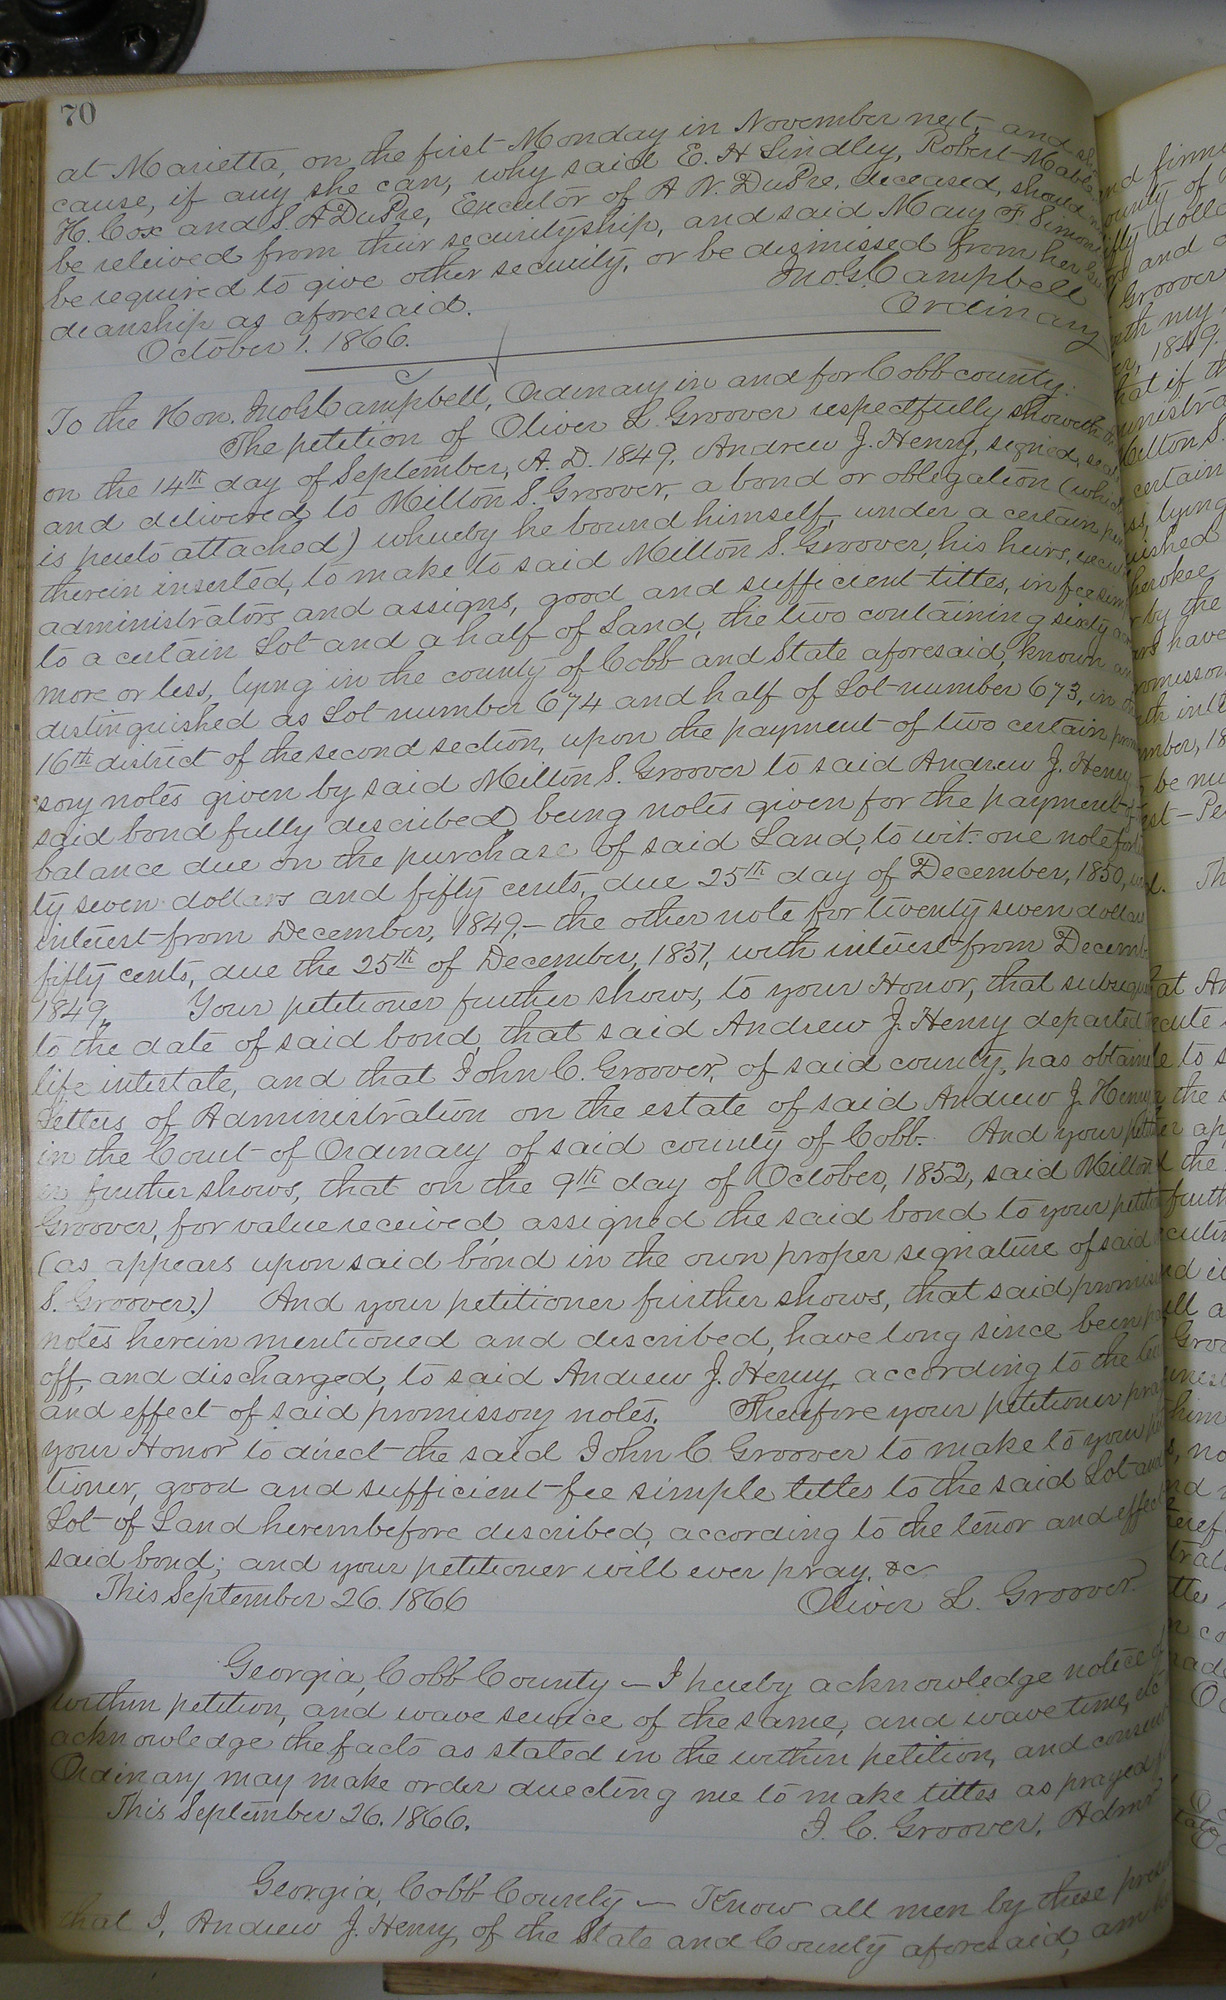 70
at Marietta, on the first Monday in November next, and
cause, if any she can, why said E. H Lindley, Robert Mable
H. Cox and S. A DuPre, Executor of A N. DuPre, deceased, should
be releived from their securityship, and said Mary F. Simons
be required to give other security, or be dismissed from her
dianship as aforesaid. Jno. G. Campbell
October 1. 1866. Ordinary
To the Hon. Jno. G. Campbell, Ordinary in and for Cobb county:
The petition of Oliver L. Groover respectfully showeth
on the 14th day of September, A. D. 1849, Andrew J. Henry, signed,
and delivered to Milton S. Groover, a bond or obligation (which
is hereto attached) whereby he bound himself, under a certain
therein inserted, to make to said Milton S. Groover, his heirs,
administrators and assigns, good and sufficient titles, in fee
to a certain Lot and a half of Land, the two containing sixty
more or less, lying in the county of Cobb and State aforesaid, known
distinguished as Lot number 674 and half of Lot number 673, in
16th district of the second section, upon the payment of two certain
sory notes given by said Milton S. Groover to said Andrew J. Henry,
said bond fully described, being notes given for the payment
balance due on the purchase of said Land, to wit: one note for
ty seven dollars and fifty cents, due 25th day of December, 1850,
interest from December, 1849,— the other note for twenty seven dollars
fifty cents, due the 25th of December, 1851, with interest from
1849. Your petitioner further shows, to your Honor, that
to the date of said bond, that said Andrew J. Henry departed
life intestate, and that John C. Groover, of said county, has
Letters of Administration on the estate of said Andrew J. Henry
in the Court of Ordinary of said county of Cobb. And your
er further shows, that on the 9th day of October, 1852, said Milton
Groover, for value received assigned the said bond to your
(as appears upon said bond in the own proper signature of said
S. Groover.) And your petitioner further shows, that said
notes herein mentioned and described, have long since been
off, and discharged, to said Andrew J. Henry, according to the
and effect of said promissory notes. Therefore your petitioner
your Honor to direct the said John C. Groover to make to your
tioner, good and sufficient fee simple titles to the said Lot and
Lot of Land hereinbefore described, according to the tenor and effect
said bond; and your petitioner will ever pray, &c
This September 26. 1866 Oliver L. Groover.
Georgia, Cobb County — I hereby acknowledge notice
within petition, and wave service of the same, and wave time, etc
acknowledge the facts as stated in the within petition, and consent
Ordinary may make order directing me to make titles as prayed
This September 26. 1866. J. C. Groover, Admr.
Georgia, Cobb County — Know all men by these
that I, Andrew J. Henry, of the State and County aforesaid, am